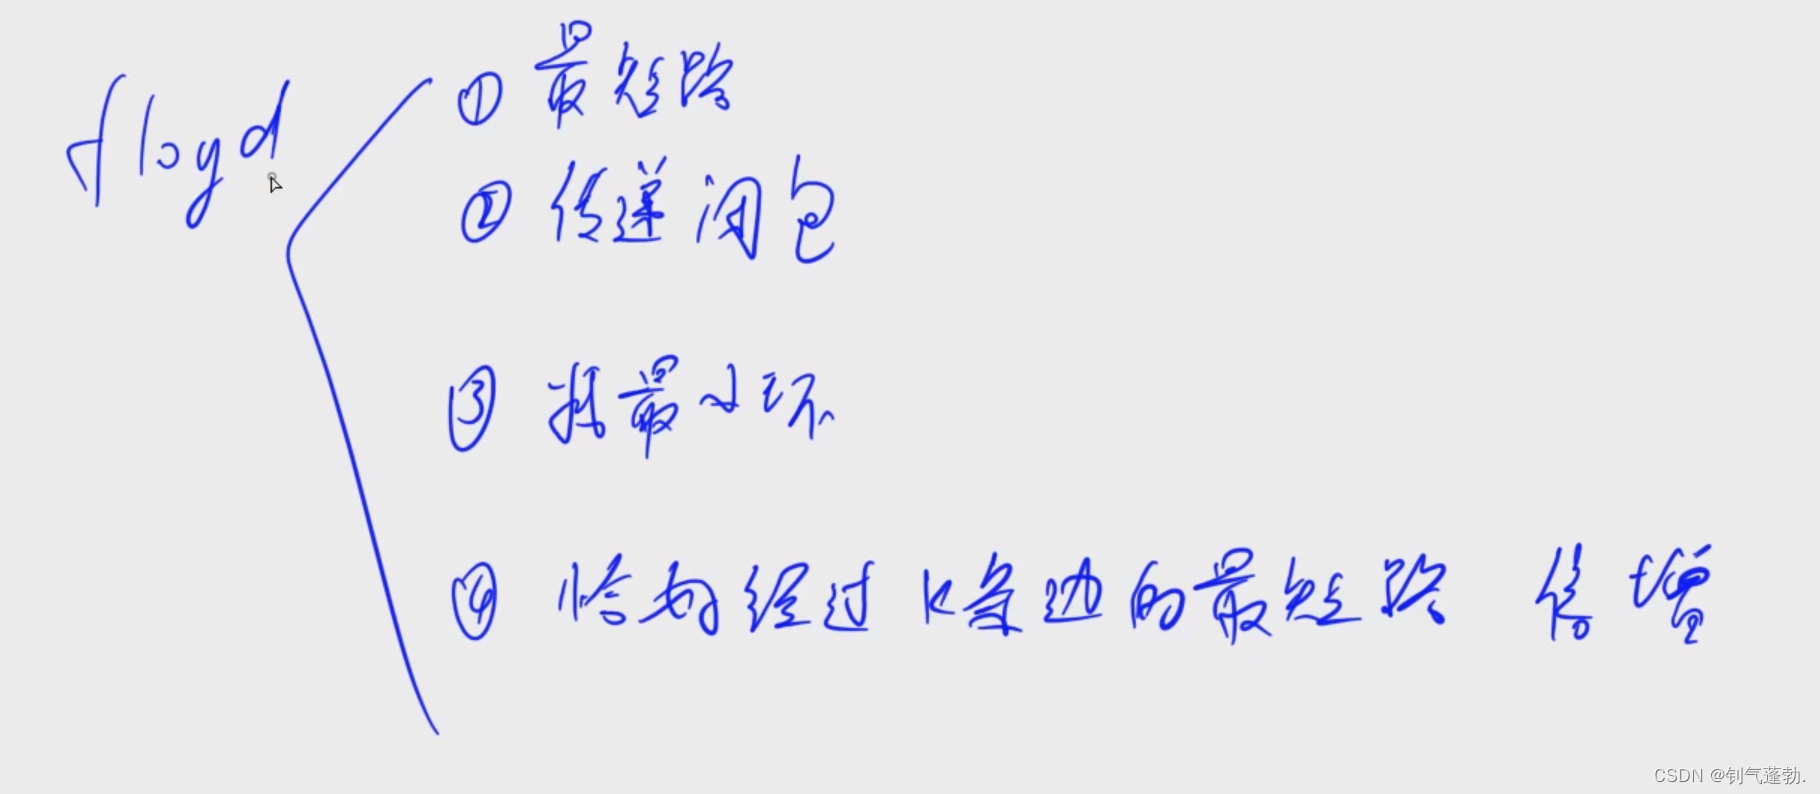 floyd
① 最短路
② 传递闭包
③ 找最小环
④ 恰好经过k条边的最短路 倍增
CSDN @钊气蓬勃.